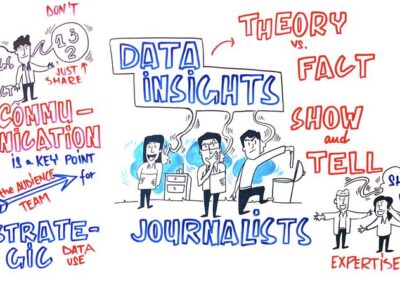 DON'T
1 3 2
JUST
SHARE
COMMU-
NICATION
IS A KEY POINT
for
the AUDIENCE
TEAM
STRATE-
GIC DATA
USE
DATA
INSIGHTS
JOURNALISTS
THEORY
vs.
FACT
SHOW
and
TELL
EXPERTISE